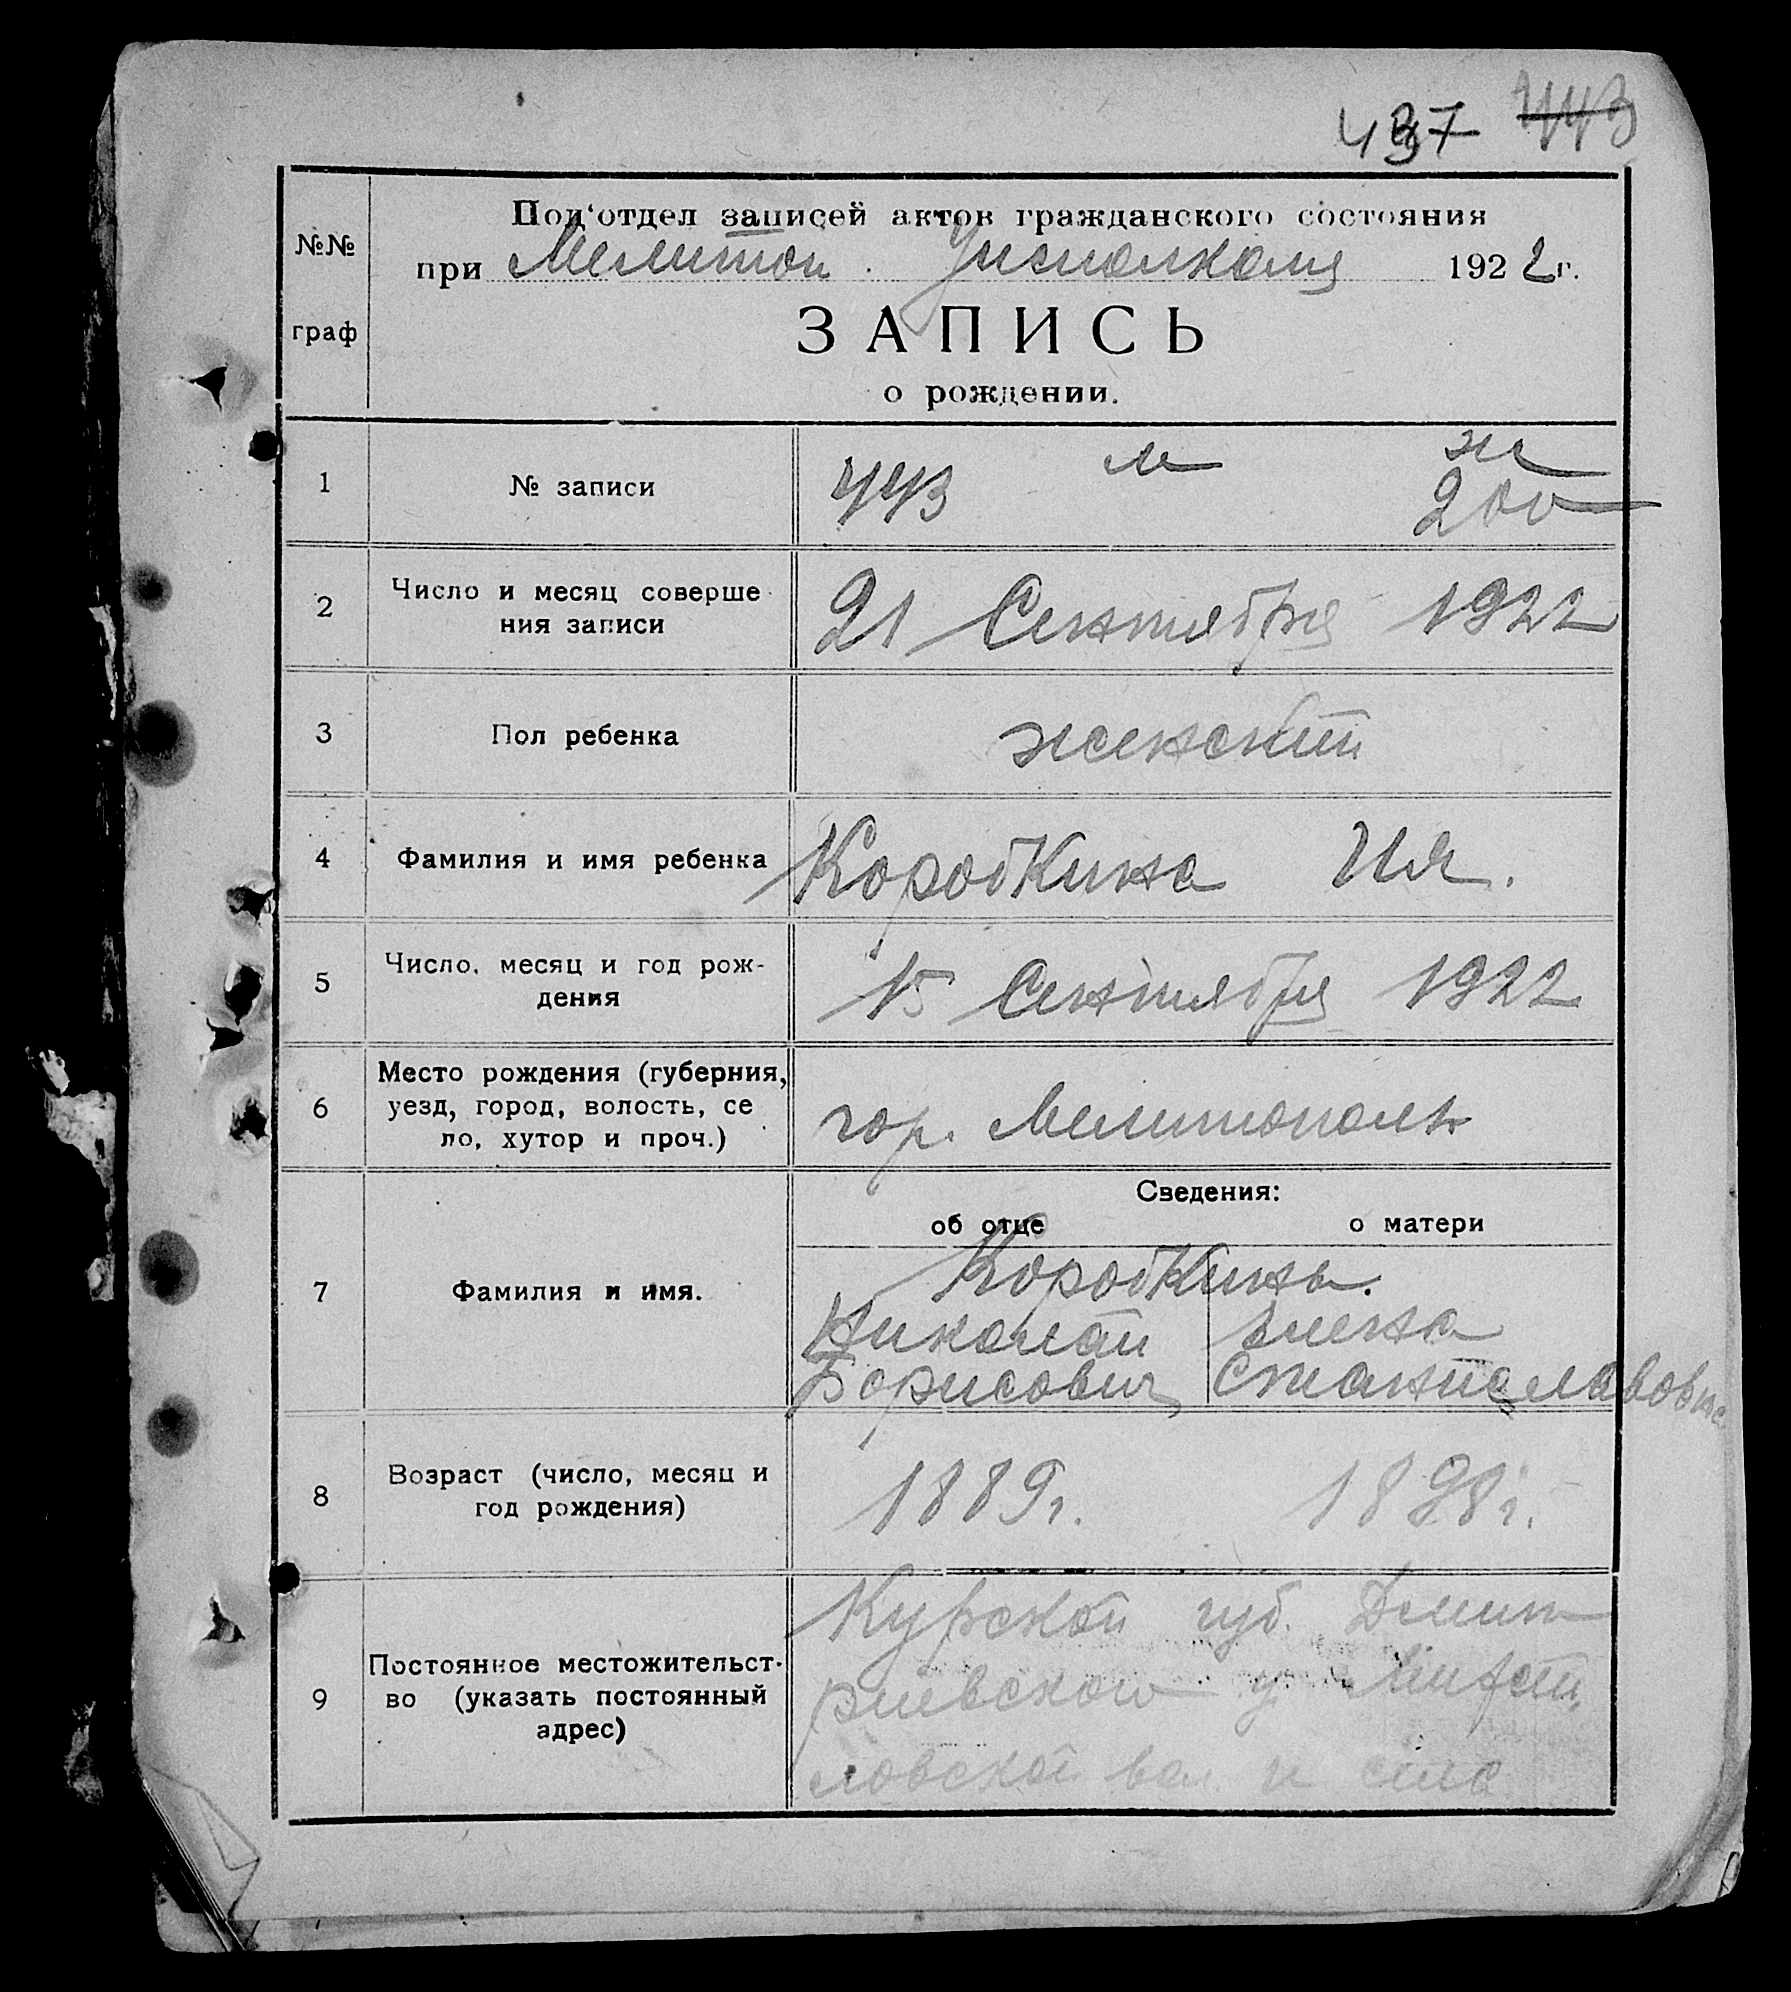 437 443
Под'отдел записей актов гражданского состояния
№№
при Мелитоп. Уисполкома 1922 г.
граф
ЗАПИСЬ
о рождении.
м ж
1 № записи 443 200
2 Число и месяц соверше
ния записи 21 Сентября 1922
3 Пол ребенка женский
4 Фамилия и имя ребенка Коробкина Ия.
5 Число, месяц и год рож-
дения 15 Сентября 1922
6 Место рождения (губерния,
уезд, город, волость, се
ло, хутор и проч.) гор. Мелитополь
Сведения:
об отце о матери
7 Фамилия и имя. Коробкины.
Николай Елена
Борисович Станиславовна
8 Возраст (число, месяц и
год рождения) 1889г. 1898г.
9 Постоянное местожительст-
во (указать постоянный
адрес) Курской губ. Дмит
риевского у
ловской вол. и села